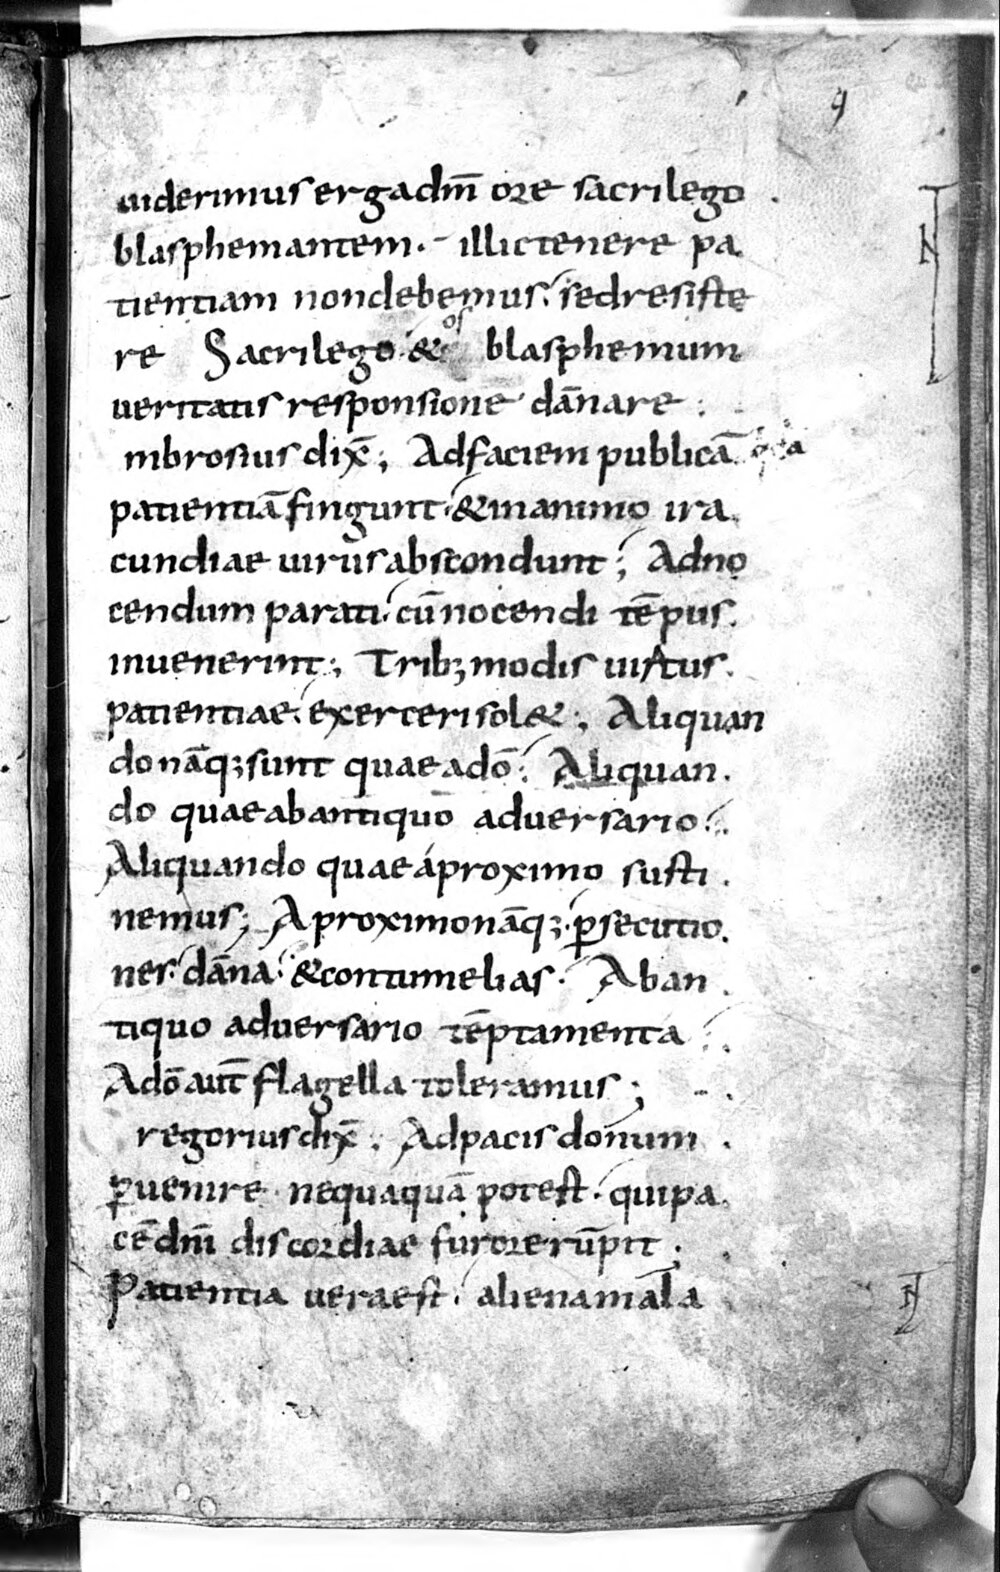 9
uiderimus ergadm̄ ore sacrilego
blasphemantem. illictenere pa
tientiam nondebemus; sedresiste
re Sacrilego & os blasphemum
ueritatis responsione dān̄are
mbrosius dix̄; Adfaciem publicā
patientiā fingunt. &inanimo ira
cundiae uirus abscondunt; Adno
cendum parati. cū nocendi tēpus
inuenerint; Tribꝫ modis uirtus
patientiae exerceri sol&; Aliquan
do nāqꝫ sunt quae adō; Aliquan
do quae abantiquo aduersario;
Aliquando quae áproximo susti
nemus; Aproximo nāqꝫ ꝑsecutio
nes. dāna. &contumelias. Aban
tiquo aduersario tēptamenta
Adō aut̄ flagella toleramus;
regorius dix̄. Adpacis donum
ꝑuenire nequaquā potest. quipa
cē dn̄i discordiae furore rūpit;
Patientia uera est. aliena mala